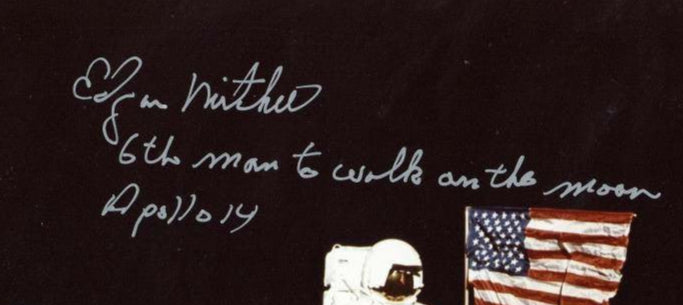 Edgar Mitchell
6th man to walk on the moon
Apollo 14